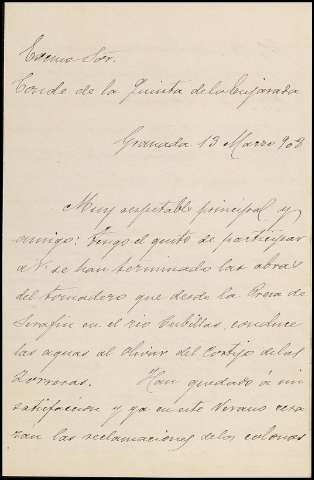 Excmo Sör.
Conde de la Quinta de la Enjarada
Granada 13 Marzo 908
Muy respetable principal y
amigo: Tengo el gusto de participar
a V. se han terminado las obras
del tomadero que desde la Presa de
Serafin en el rio Cubillas, conduce
las aguas al Olivar del Cortijo de las
Torreras. Han quedado á mi
satisfaccion y ya en este Verano cesa
ran las reclamaciones de los colonos